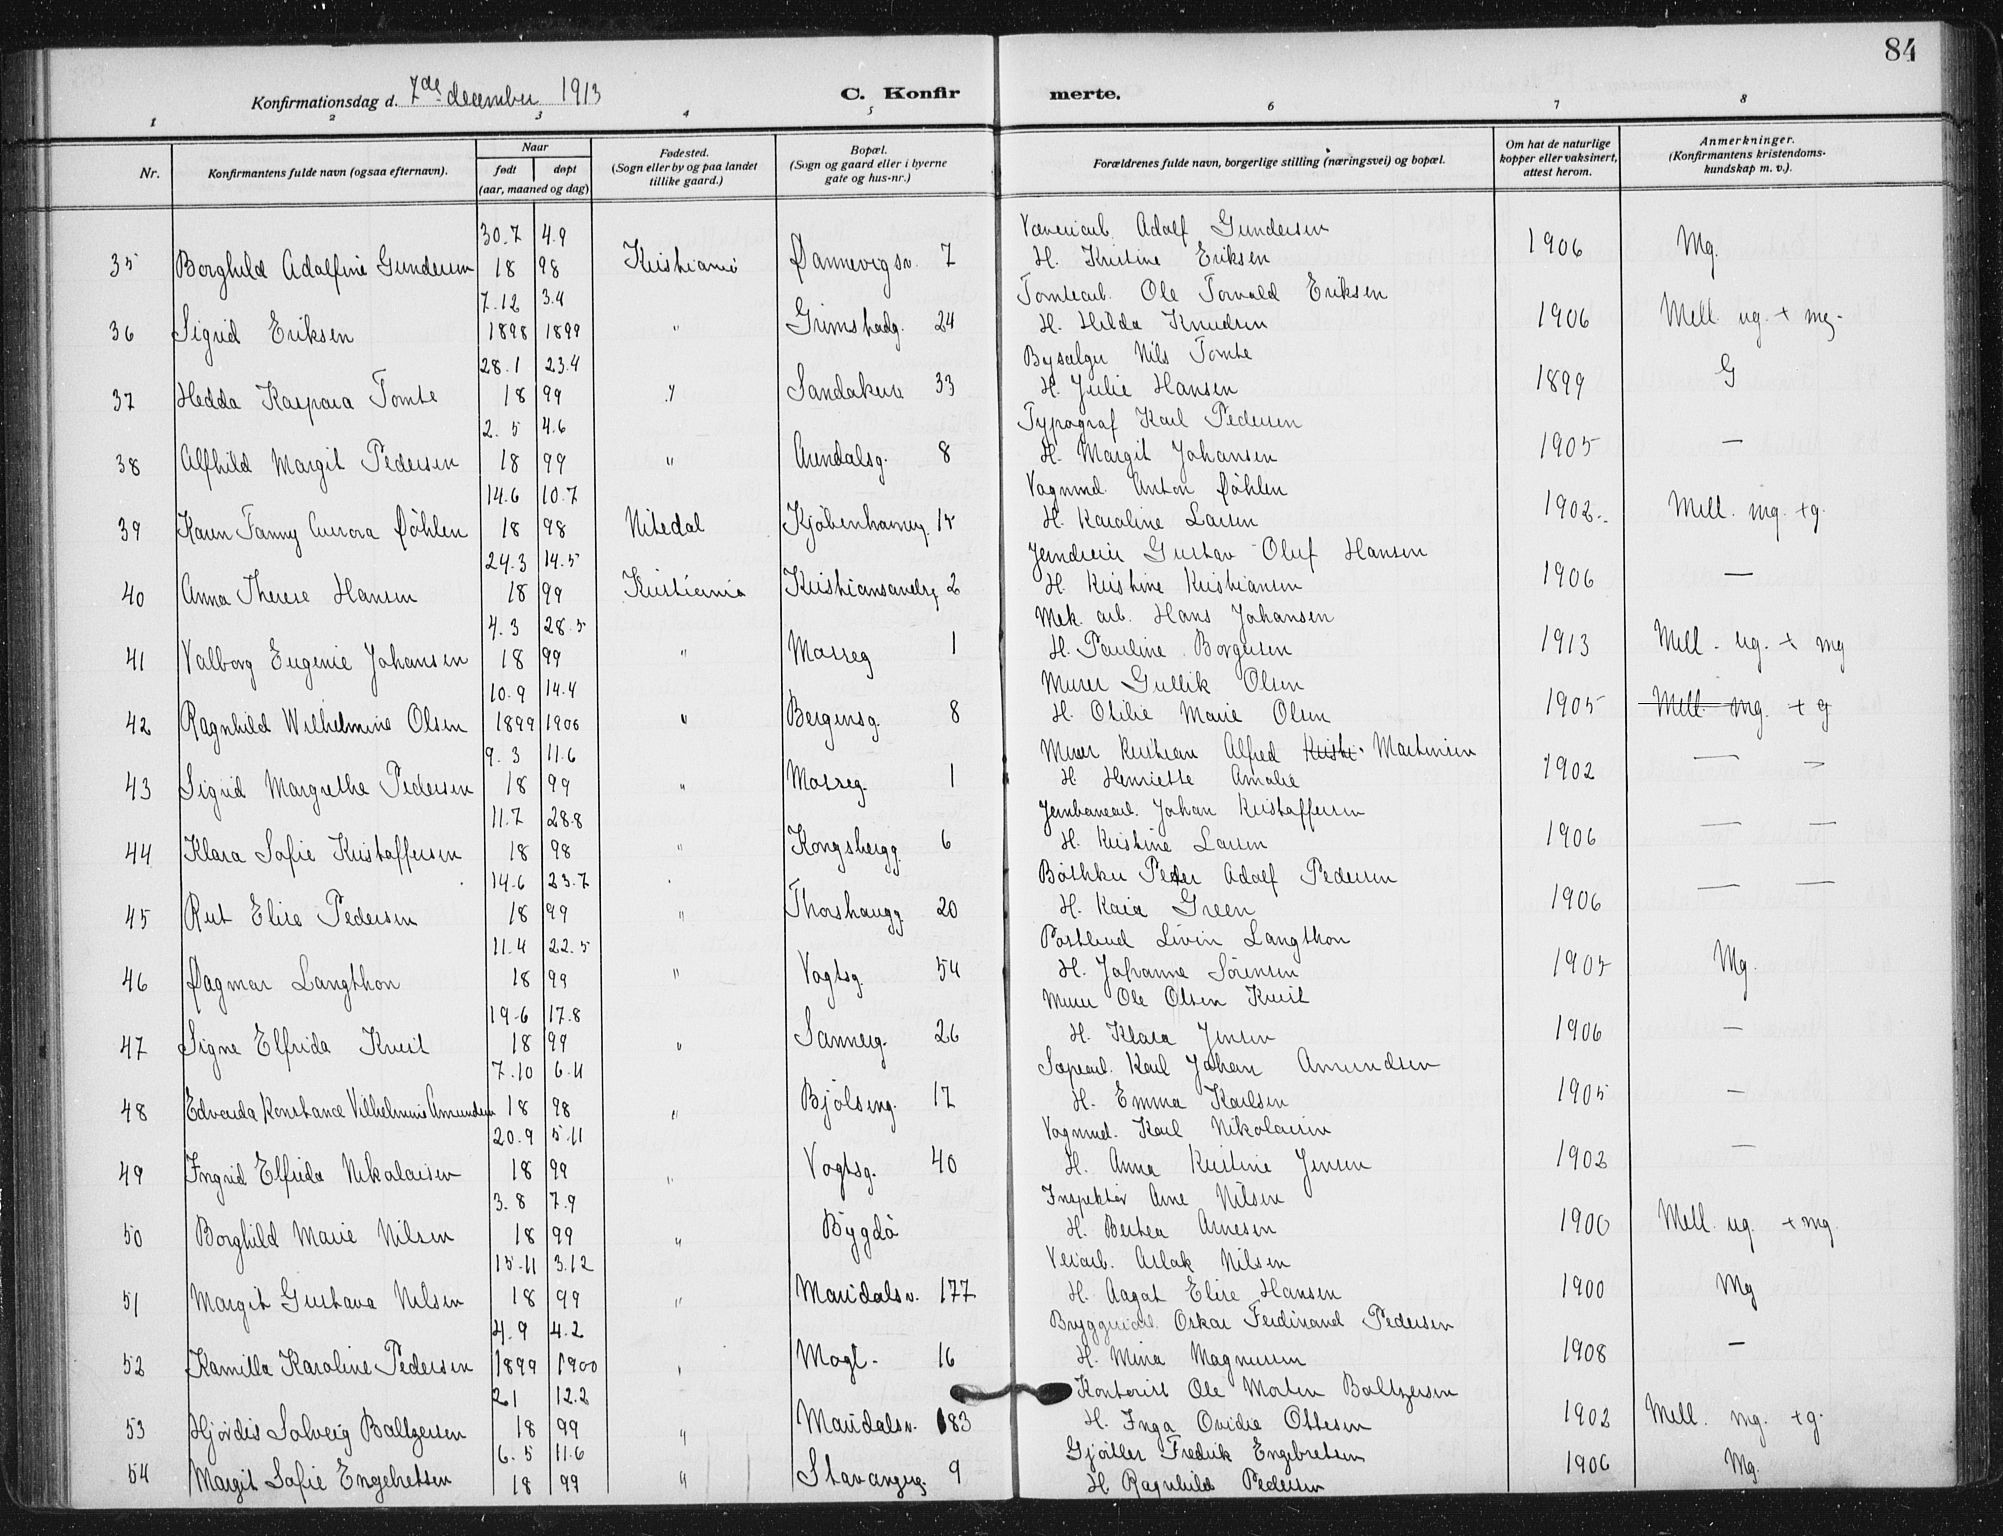 84
Konfirmationsdag d. 7de december 1913
C. Konfirmerte.
1 2 3 4 5 6 7 8
Nr.
Konfirmantens fulde navn (ogsaa efternavn).
Naar
født døpt
(aar, maaned og dag)
Fødested.
(Sogn eller by og paa landet
tillike gaard.)
Bopæl.
(Sogn og gaard eller i byerne
gate og hus-nr.)
Forældrenes fulde navn, borgerlige stilling (næringsvei) og bopæl.
Om hat de naturlige
kopper eller vaksinert,
attest herom.
Anmerkninger.
(Konfirmantens kristendoms-
kundskap m. v.).
30.7 4.9 Væveriarb. Adolf Gundersen
35 Borghild Adolfine Gundersen 18 98 Kristiania Dannevigsv. 7 H. Kristine Eriksen 1906 Mg.
7.12 3.4 Tomtearb. Ole Torvald Eriksen
36 Sigrid Eriksen 1898 1899 " Grimstadg. 24 H. Hilda Knudsen 1906 Mell. ug. + mg.
28.1 23.4 Bysælger Nils Tomte
37 Hedda Kaspara Tomte 18 99 " Sandakerv. 33 H. Julie Hansen 1899 G
2.5 4.6 Typograf Karl Pedersen
38 Alfhild Margit Pedersen 18 99 " Arendalsg. 8 H. Margit Johansen 1905 —
14.6 10.7 Vognmd. Anton Døhlen
39 Karen Fanny Aurora Døhlen 18 98 Nitedal Kjøbenhavneg. 15 H. Karoline Larsen 1902 Mell. mg. + g.
24.3 14.5 Jerndreier Gustav Oluf Hansen
40 Anna Therese Hansen 18 99 Kristiania Kristiansandsg 2 H. Kristine Kristiansen 1906 —
4.3 28.5 Mek. arb. Hans Johansen
41 Valborg Eugenie Johansen 18 99 " Mosseg 1 H. Pauline Borgersen 1913 Mell. ug. + mg
10.9 14.4 Murer Gullik Olsen
42 Ragnhild Wilhelmine Olsen 1899 1900 " Bergensg. 8 H. Otilie Marie Olsen 1905 Mell. mg. + g
9.3 11.6 Murer Kristian Alfred Kristi Martinsen
43 Sigrid Margrethe Pedersen 18 99 " Mosseg. 1 H. Henriette Amalie 1902 — —
11.7 28.8 Jernbanearb. Johan Kristoffersen
44 Klara Sofie Kristoffersen 18 98 " Kongsbergg. 6 H. Kristine Larsen 1906 — —
14.6 23.7 Bøthker Peder Adolf Pedersen
45 Rut Elise Pedersen 18 99 " Thorshaugg. 20 H. Kaia Green 1906 — —
11.4 22.5 Postbud Livin Langthon
46 Dagmar Langthon 18 99 " Vogtsg. 54 H. Johanne Sørensen 1905 Mg.
19.6 17.8 Murer Ole Olsen Kveil
47 Signe Elfrida Kveil 18 99 " Sannerg. 26 H. Klara Jensen 1906 —
7.10 6.11 Sæpearb. Karl Johan Amundsen
48 Edvarda Konstance Vilhelmine Amundsen 18 98 " Bjølseng. 17 H. Emma Karlsen 1905 —
20.9 5.11 Vognmd. Karl Nikolaisen
49 Ingrid Elfrida Nikolaisen 18 99 " Vogtsg. 40 H. Anna Kristine Jensen 1902 —
3.8 7.9 Inspektør Arne Nilsen
50 Borghild Marie Nilsen 18 99 " Bygdø H. Berthea Arnesen 1900 Mell. ug. + mg.
15.11 3.12 Veiarb. Aslak Nilsen
51 Margit Gustava Nilsen 18 99 " Maridalsv. 177 H. Aagat Elise Hansen 1900 Mg
4.9 4.2 Oskar Ferdinand Pedersen
52 Kamilla Karoline Pedersen 1899 1900 " 16 H. Mina Magnusen 1908 —
2.1 12.2 Kontorist Ole Morten Baltzersen
53 Hjørdis Solveig Baltzersen 18 99 " Maridalsv. 183 H. Inga Ovidie Ottesen 1902 Mell. mg. + g.
6.5 11.6 Gjørtler Fredrik Engebretsen
54 Margit Sofie Engebretsen 18 99 " Stavangerg. 9 H. Ragnhild Pedersen 1906 Mg.